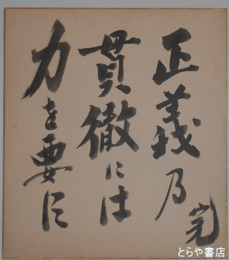 正義乃
貫徹には
力を要す
とらや書店